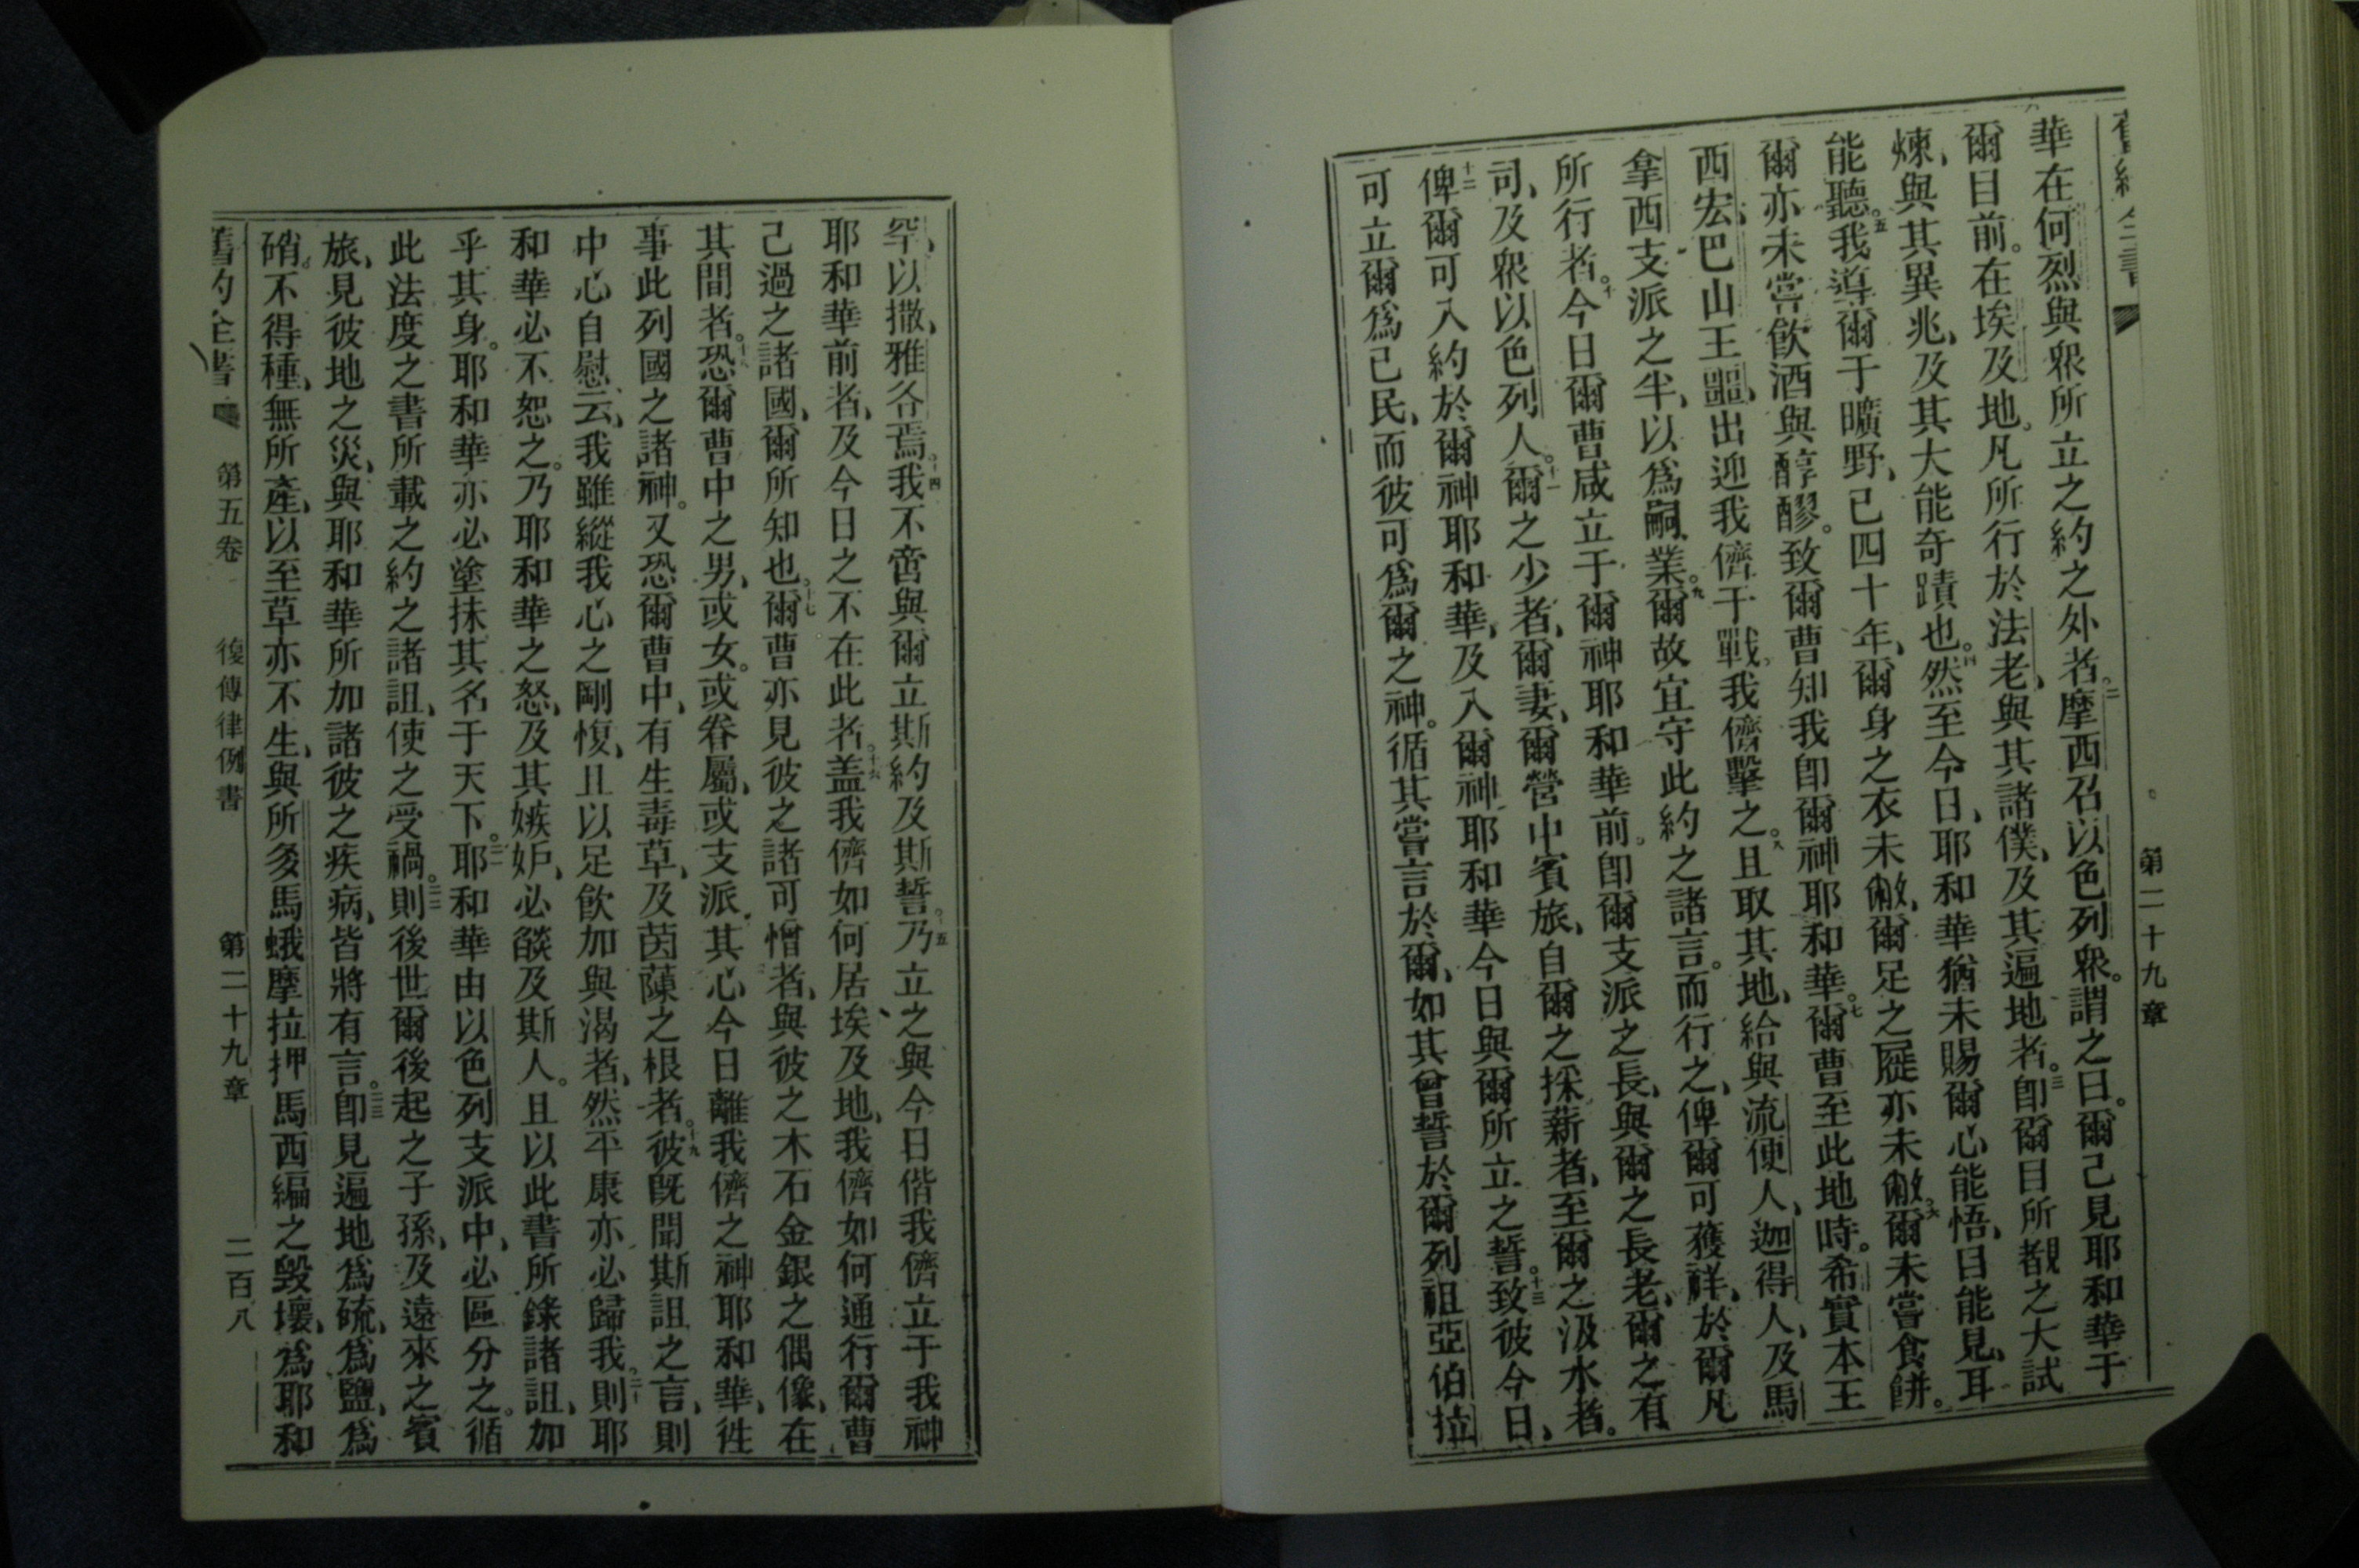 第二十九章
華在何烈與眾所立之約之外者。二摩西召以色列眾。謂之曰。爾己見耶和華于
爾目前。在埃及地。凡所行於法老、與其諸僕、及其遍地者。三卽爾目所覩之大試
煉、與其異兆、及其大能奇蹟也。四然至今日、耶和華猶未賜爾心能悟、目能見、耳
能聽。五我導爾于曠野、己四十年、爾身之衣未敝、爾足之屣亦未敝。六爾未嘗食餅。
爾亦未嘗飮酒與醇醪。致爾曹知我卽爾神耶和華。七爾曹至此地時。希實本王
西宏、巴山王噩、出迎我儕于戰。我儕擊之。八且取其地、給與流便人、迦得人、及馬
拿西支派之半、以爲嗣業。九爾故宜守此約之諸言。而行之、俾爾可獲祥、於爾凡
所行者。十今日爾曹咸立于爾神耶和華前。卽爾支派之長、與爾之長老、爾之有
司、及眾以色列人。十一爾之少者、爾妻、爾營中賓旅、自爾之採薪者、至爾之汲水者。
十二俾爾可入約於爾神耶和華、及入爾神耶和華今日與爾所立之誓。十三致彼今日、
可立爾爲己民、而彼可爲爾之神。循其嘗言於爾、如其曾誓於爾列祖亞伯拉
罕、以撒、雅各焉。十四我不啻與爾立斯約及斯誓。十五乃立之與今日偕我儕立于我神
耶和華前者、及今日之不在此者。十六盖我儕如何居埃及地、我儕如何通行爾曹
己過之諸國、爾所知也。十七爾曹亦見彼之諸可憎者、與彼之木石金銀之偶像、在
其間者。十八恐爾曹中之男、或女。或眷屬、或支派、其心今日離我儕之神耶和華、徃
事此列國之諸神。又恐爾曹中、有生毒草、及茵蔯之根者。十九彼旣聞斯詛之言、則
中心自慰云、我雖縱我心之剛愎、且以足飮加與渴者、然平康亦必歸我。二十則耶
和華必不恕之。乃耶和華之怒、及其嫉妒、必燄及斯人。且以此書所錄諸詛、加
乎其身。耶和華亦必塗抹其名于天下。二一耶和華由以色列支派中、必區分之。循
此法度之書所載之約之諸詛、使之受禍。二二則後世爾後起之子孫、及遠來之賓
旅、見彼地之災、與耶和華所加諸彼之疾病、皆將有言。二三卽見遍地爲硫、爲鹽、爲
硝。不得種、無所產、以至草亦不生、與所多馬蛾摩拉押馬西編之毀壞、爲耶和
舊約全書 第五卷 復傳律例書 第二十九章 二百八